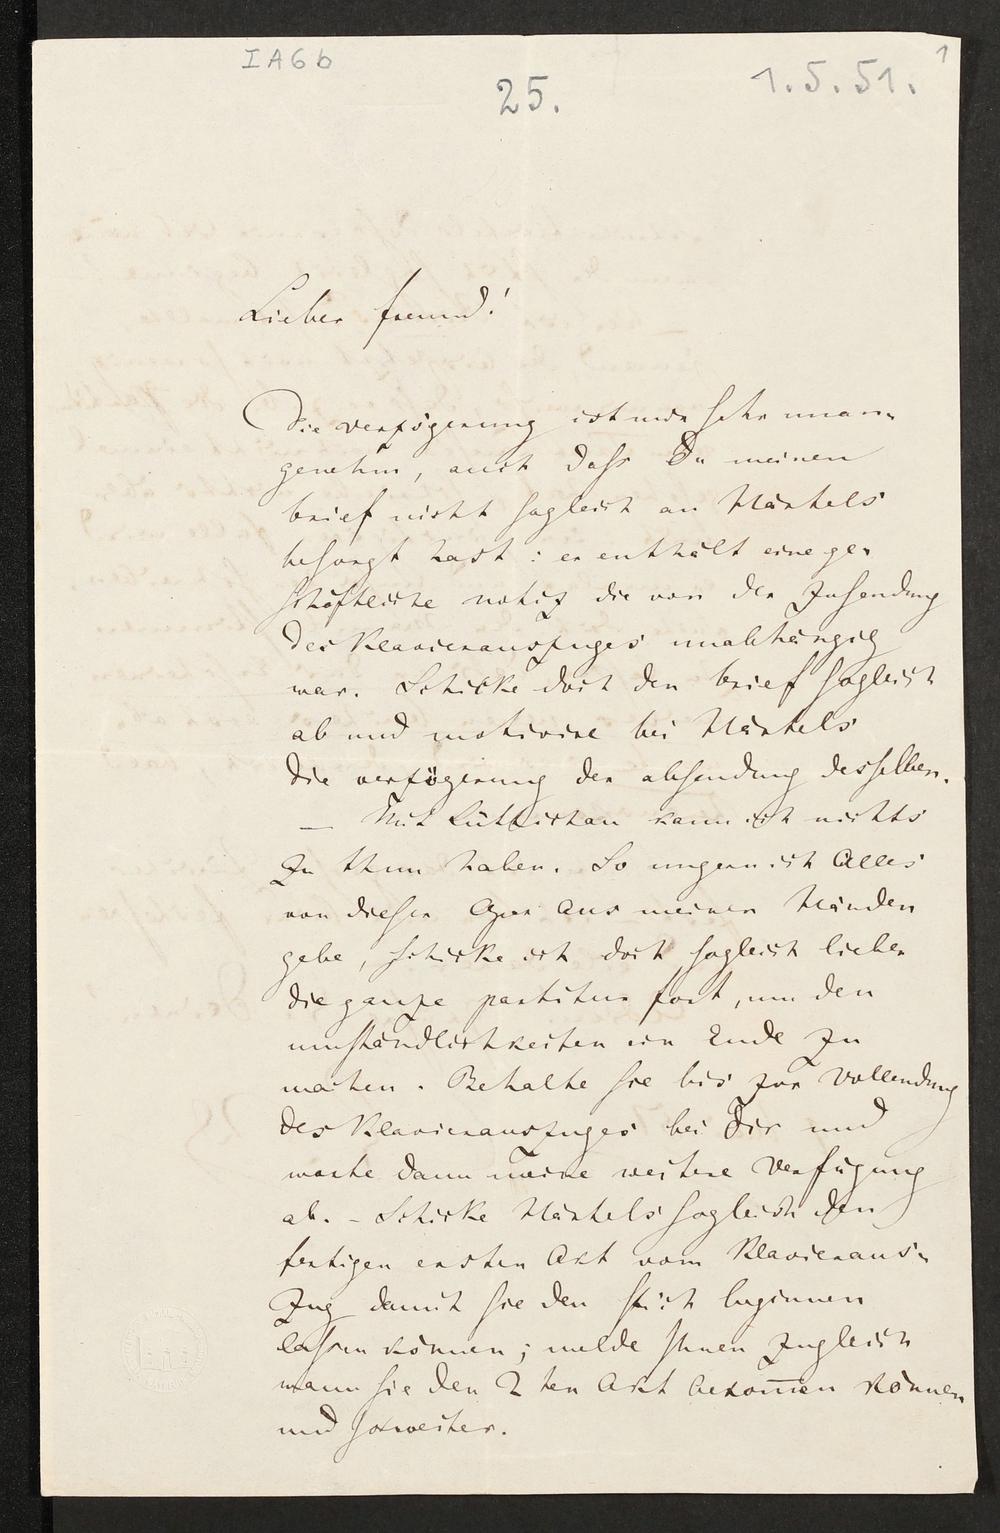 IA6b
25.
1.5.51.
1
Lieber freund!
Die verzögerung ist mir sehr unan-
genehm, auch daß Du meinen
brief nicht sogleich an Härtels
besorgt hast: er enthält eine ge-
schäftliche notiz die von der Zusendung
des Klavierauszuges unabhängig
war. Schicke doch den brief sogleich
ab und motivire bei Härtels
die verzögerung der absendung desselben.
— Mit Lüttichau kann ich nichts
zu thun haben. So ungern ich Alles
von dieser Oper aus meinen Händen
gebe, schicke ich doch sogleich lieber
die ganze partitur fort, um den
umständlichkeiten ein Ende zu
machen. Behalte sie bis zur Vollendung
des Klavierauszuges bei Dir und
warte dann meine weitere Verfügung
ab. – Schicke Härtels sogleich den
fertigen ersten Akt vom Klavieraus-
zug damit sie den stich beginnen
lassen können; melde Ihnen zugleich
wann sie den 2ten Akt bekom̅en können
und so weiter.